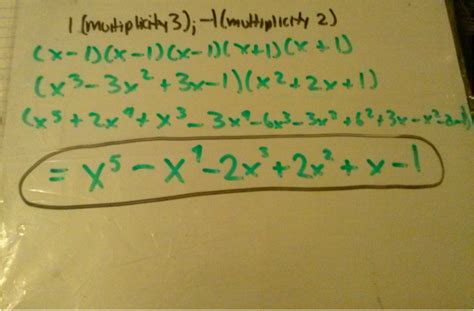 1 (multiplicity 3); -1 (multiplicity 2)
(x-1)(x-1)(x-1)(x+1)(x+1)
(x³-3x²+3x-1)(x²+2x+1)
(x⁵+2x⁴+x³-3x⁴-6x³-3x²+6²+3x-x²-2x-1)
= x⁵-x⁴-2x³+2x²+x-1